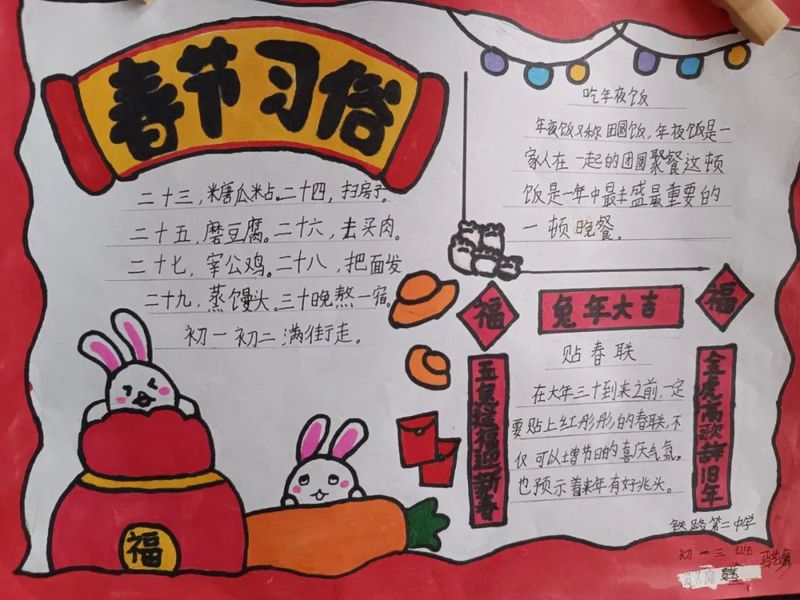 春节习俗
二十三，米唐瓜米占。二十四，扫房子。
二十五，磨豆腐。二十六，去买肉。
二十七，宰公鸡。二十八，把面发
二十九，蒸馒头。三十晚熬一宿。
初一初二满街走。
福
吃年夜饭
年夜饭又称团圆饭，年夜饭是一
家人在一起的团圆聚餐这顿
饭是一年中最丰盛最重要的
一顿晚餐。
福
兔年大吉
福
玉兔送福迎新春
贴春联
在大年三十到来之前，一定
要贴上红彤彤的春联，不
仅可以增节日的喜庆气氛。
也预示着来年有好兆头。
金虎高歌辞旧年
铁路第二中学
初一三班